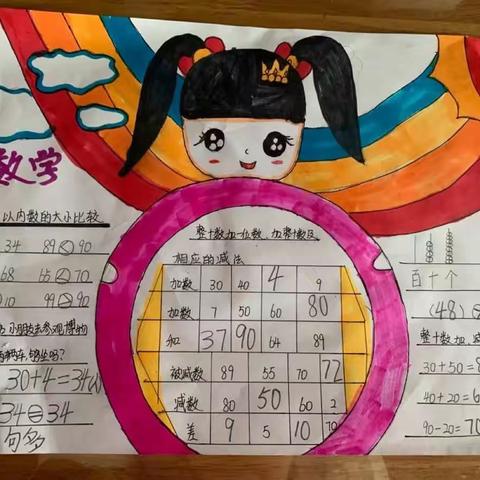 数学
以内数的大小比较
34 89<90
68 66<70
10 99>90
小朋友去参观博物
两辆车够坐吗?
30+4=34(
34=34
句多
整十数加一位数、加整十数及
相应的减法
加数 30 40 4 9
加数 7 50 60 80
和 37 90 64 89
被减数 89 55 70 72
减数 80 50 60 2
差 9 5 10 70
百十个
(48)
整十数加、
30+50=8
40+20=6
90-20=70